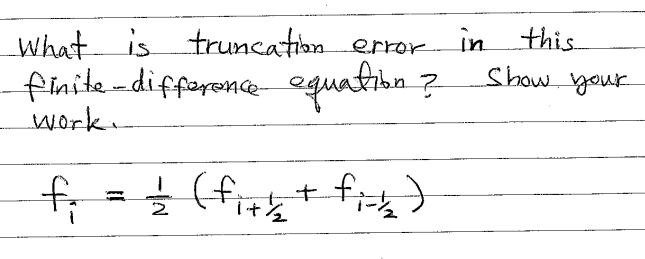 What is truncation error in this
finite-difference equation? Show your
work.
f_i = 1/2 (f_{i+1/2} + f_{i-1/2})